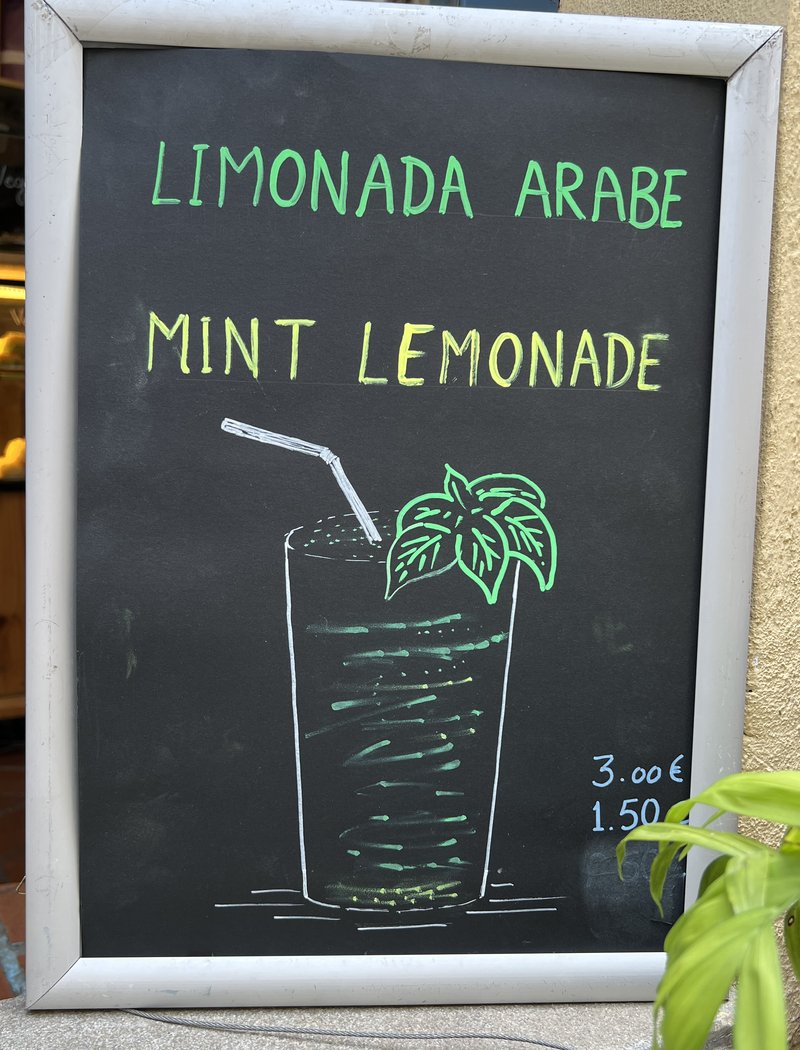 LIMONADA ARABE
MINT LEMONADE
3.00€
1.50